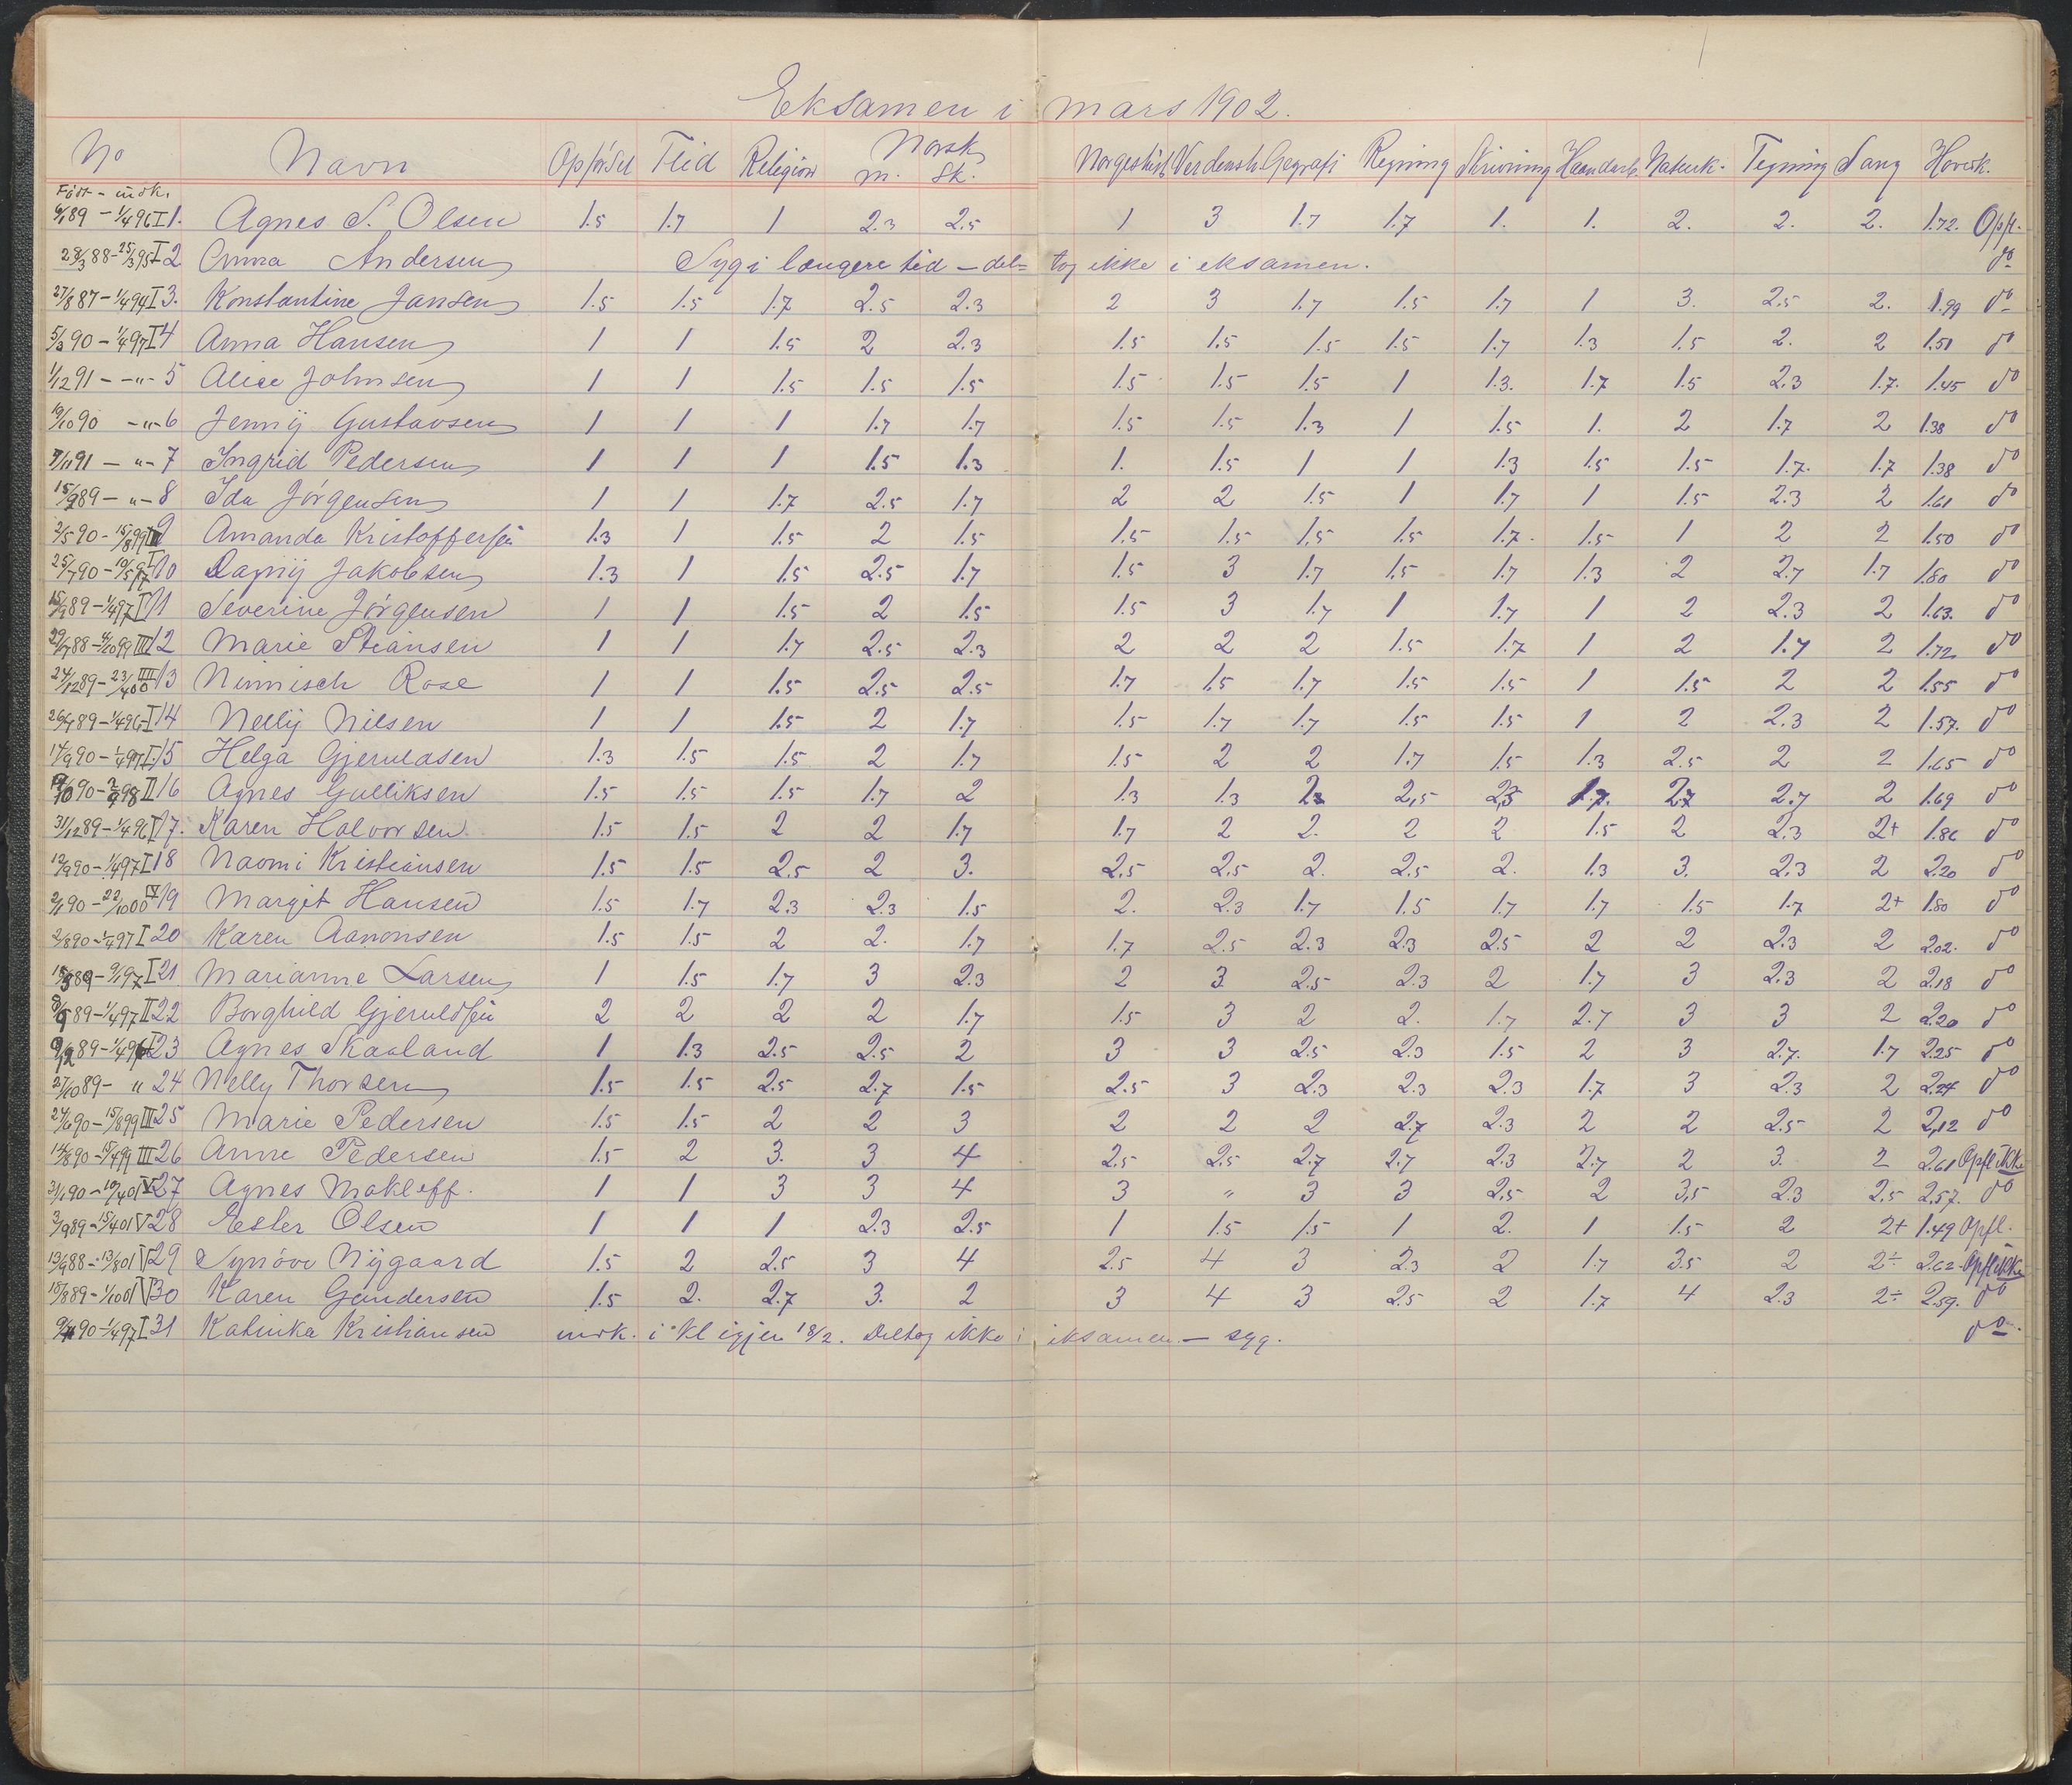 Eksamen i mars 1902.
No Navn Opförsel Flid Religion Norsk m. Sk. Norgeshist. Verdensh. Geografi Regning Skrivning Haandarb. Naturk. Tegning Sang Hovedk.
Födt - indsk.
6/1 89 - 1/4 96 I 1. Agnes S. Olsen 1.5 1.7 1 2.3 2.5 1 3 1.7 1.7 1. 1. 2. 2. 2. 1.72. Opfl.
28/3 88 - 25/3 95 I 2 Anna Andersen Syg i længere tid – del= tog ikke i eksamen. do
27/8 87 - 1/4 94 I 3. Konstantine Jansen 1.5 1.5 1.7 2.5 2.3 2 3 1.7 1.5 1.7 1 3. 2.5 2. 1.99 do
5/3 90 - 1/4 97 I 4 Anna Hansen 1 1 1.5 2 2.3 1.5 1.5 1.5 1.5 1.7 1.3 1.5 2. 2 1.50 do
1/12 91 - -"- 5 Alice Johnsen 1 1 1.5 1.5 1.5 1.5 1.5 1.5 1 1.3. 1.7 1.5 2.3 1.7. 1.45 do
19/10 90 -"- 6 Jennÿ Gustavsen 1 1 1 1.7 1.7 1.5 1.5 1.3 1 1.5 1. 2 1.7 2 1.38 do
7/11 91 - "- 7 Ingrid Pedersen 1 1 1 1.5 1.3 1. 1.5 1 1 1.3 1.5 1.5 1.7. 1.7 1.38 do
15/9 89 - "- 8 Ida Jörgensen 1 1 1.7 2.5 1.7 2 2 1.5 1 1.7 1 1.5 2.3 2 1.61 do
2/5 90 - 15/8 99 III 9 Amanda Kristoffersen 1.3 1 1.5 2 1.5 1.5 1.5 1.5 1.5 1.7. 1.5 1 2 2 1.50 do
25/7 90 - 10/5 97 I 10 Dagnÿ Jakobsen 1.3 1 1.5 2.5 1.7 1.5 3 1.7 1.5 1.7 1.3 2 2.7 1.7 1.80 do
15/9 89 - 1/4 97 I 11 Severine Jörgensen 1 1 1.5 2 1.5 1.5 3 1.7 1 1.7 1 2 2.3 2 1.63. do
29/7 88 - 4/10 99 III 12 Marie Stiansen 1 1 1.7 2.5 2.3 2 2 2 1.5 1.7 1 2 1.7 2 1.72 do
24/12 89 - 23/4 00 IIII 13 Nimisch Rose 1 1 1.5 2.5 2.5 1.7 1.5 1.7 1.5 1.5 1 1.5 2 2 1.55 do
26/7 89 - 1/4 96 I 14 Nellÿ Nilsen 1 1 1.5 2 1.7 1.5 1.7 1.7 1.5 1.5 1 2 2.3 2 1.57. do
14/9 90 - 1/4 97 I 15 Helga Gjeruldsen 1.3 1.5 1.5 2 1.7 1.5 2 2 1.7 1.5 1.3 2.5 2 2 1.65 do
90 - 98 II 16 Agnes Gulliksen 1.5 1.5 1.5 1.7 2 1.3 1.3 2,5 2.7 2.7 2 1.69 do
31/12 89 - 1/4 96 I 17. Karen Halvorsen 1.5 1.5 2 2 1.7 1.7 2 2. 2 2 1.5 2 2.3 2+ 1.86 do
12/9 90 - 1/4 97 I 18 Naomi Kristiansen 1.5 1.5 2.5 2 3. 2.5 2.5 2. 2.5 2. 1.3 3. 2.3 2 2.20 do
2/1 90 - 22/10 00 IV 19 Margit Hansen 1.5 1.7 2.3 2.3 1.5 2. 2.3 1.7 1.5 1.7 1.7 1.5 1.7 2+ 1.80 do
2/8 90 - 1/4 97 I 20 Karen Aanonsen 1.5 1.5 2 2. 1.7 1.7 2.5 2.3 2.3 2.5 2 2 2.3 2 2.02. do
89 - 9/1 97 I 21 Marianne Larsen 1 1.5 1.7 3 2.3 2 3 2.5 2.3 2 1.7 3 2.3 2 2.18 do
89 - 1/4 97 II 22 Borghild Gjeruldsen 2 2 2 2 1.7 1.5 3 2 2. 1.7 2.7 3 3 2 2.20 do
89 - 1/4 96 I 23 Agnes Skaaland 1 1.3 2.5 2.5 2 3 3 2.5 2.3 1.5 2 3 2.7. 1.7 2.25 do
27/10 89 - " 24 Nelly Thorsen 1.5 1.5 2.5 2.7 1.5 2.5 3 2.3 2.3 2.3 1.7 3 2.3 2 2.24 do
24/6 90 - 15/8 99 III 25 Marie Pedersen 1.5 1.5 2 2 3 2 2 2 2.7 2.3 2 2 2.5 2 2,12 do
14/8 90 - 15/4 99 III 26 Anne Pedersen 1.5 2 3. 3 4 2.5 2.5 2.7 2.7 2.3 2.7 2 3. 2 2.61 Opfl. ikke
31/1 90 - 10/4 01 V 27 Agnes Makleff. 1 1 3 3 4 3 " 3 3 2.5 2 3,5 2.3 2.5 2.57. do
3/9 89 - 15/4 01 V 28 Ester Olsen 1 1 1 2.3 2.5 1 1.5 1.5 1 2. 1 1.5 2 2+ 1.49 Opfl.
13/9 88 - 13/8 01 V 29 Synöve Nÿgaard 1.5 2 2.5 3 4 2.5 4 3 2.3 2 1.7 3.5 2 2÷ 2.62 Opfl ikke
18/8 89 - 1/10 01 V 30 Karen Gundersen 1.5 2. 2.7 3. 2 3 4 3 2.5 2 1.7 4 2.3 2÷ 2.59. do
90 - 1/4 97 I 31 Katinka Kristiansen indk. i kl igjen 18/2. Deltog ikke i eksamen – syg. do.